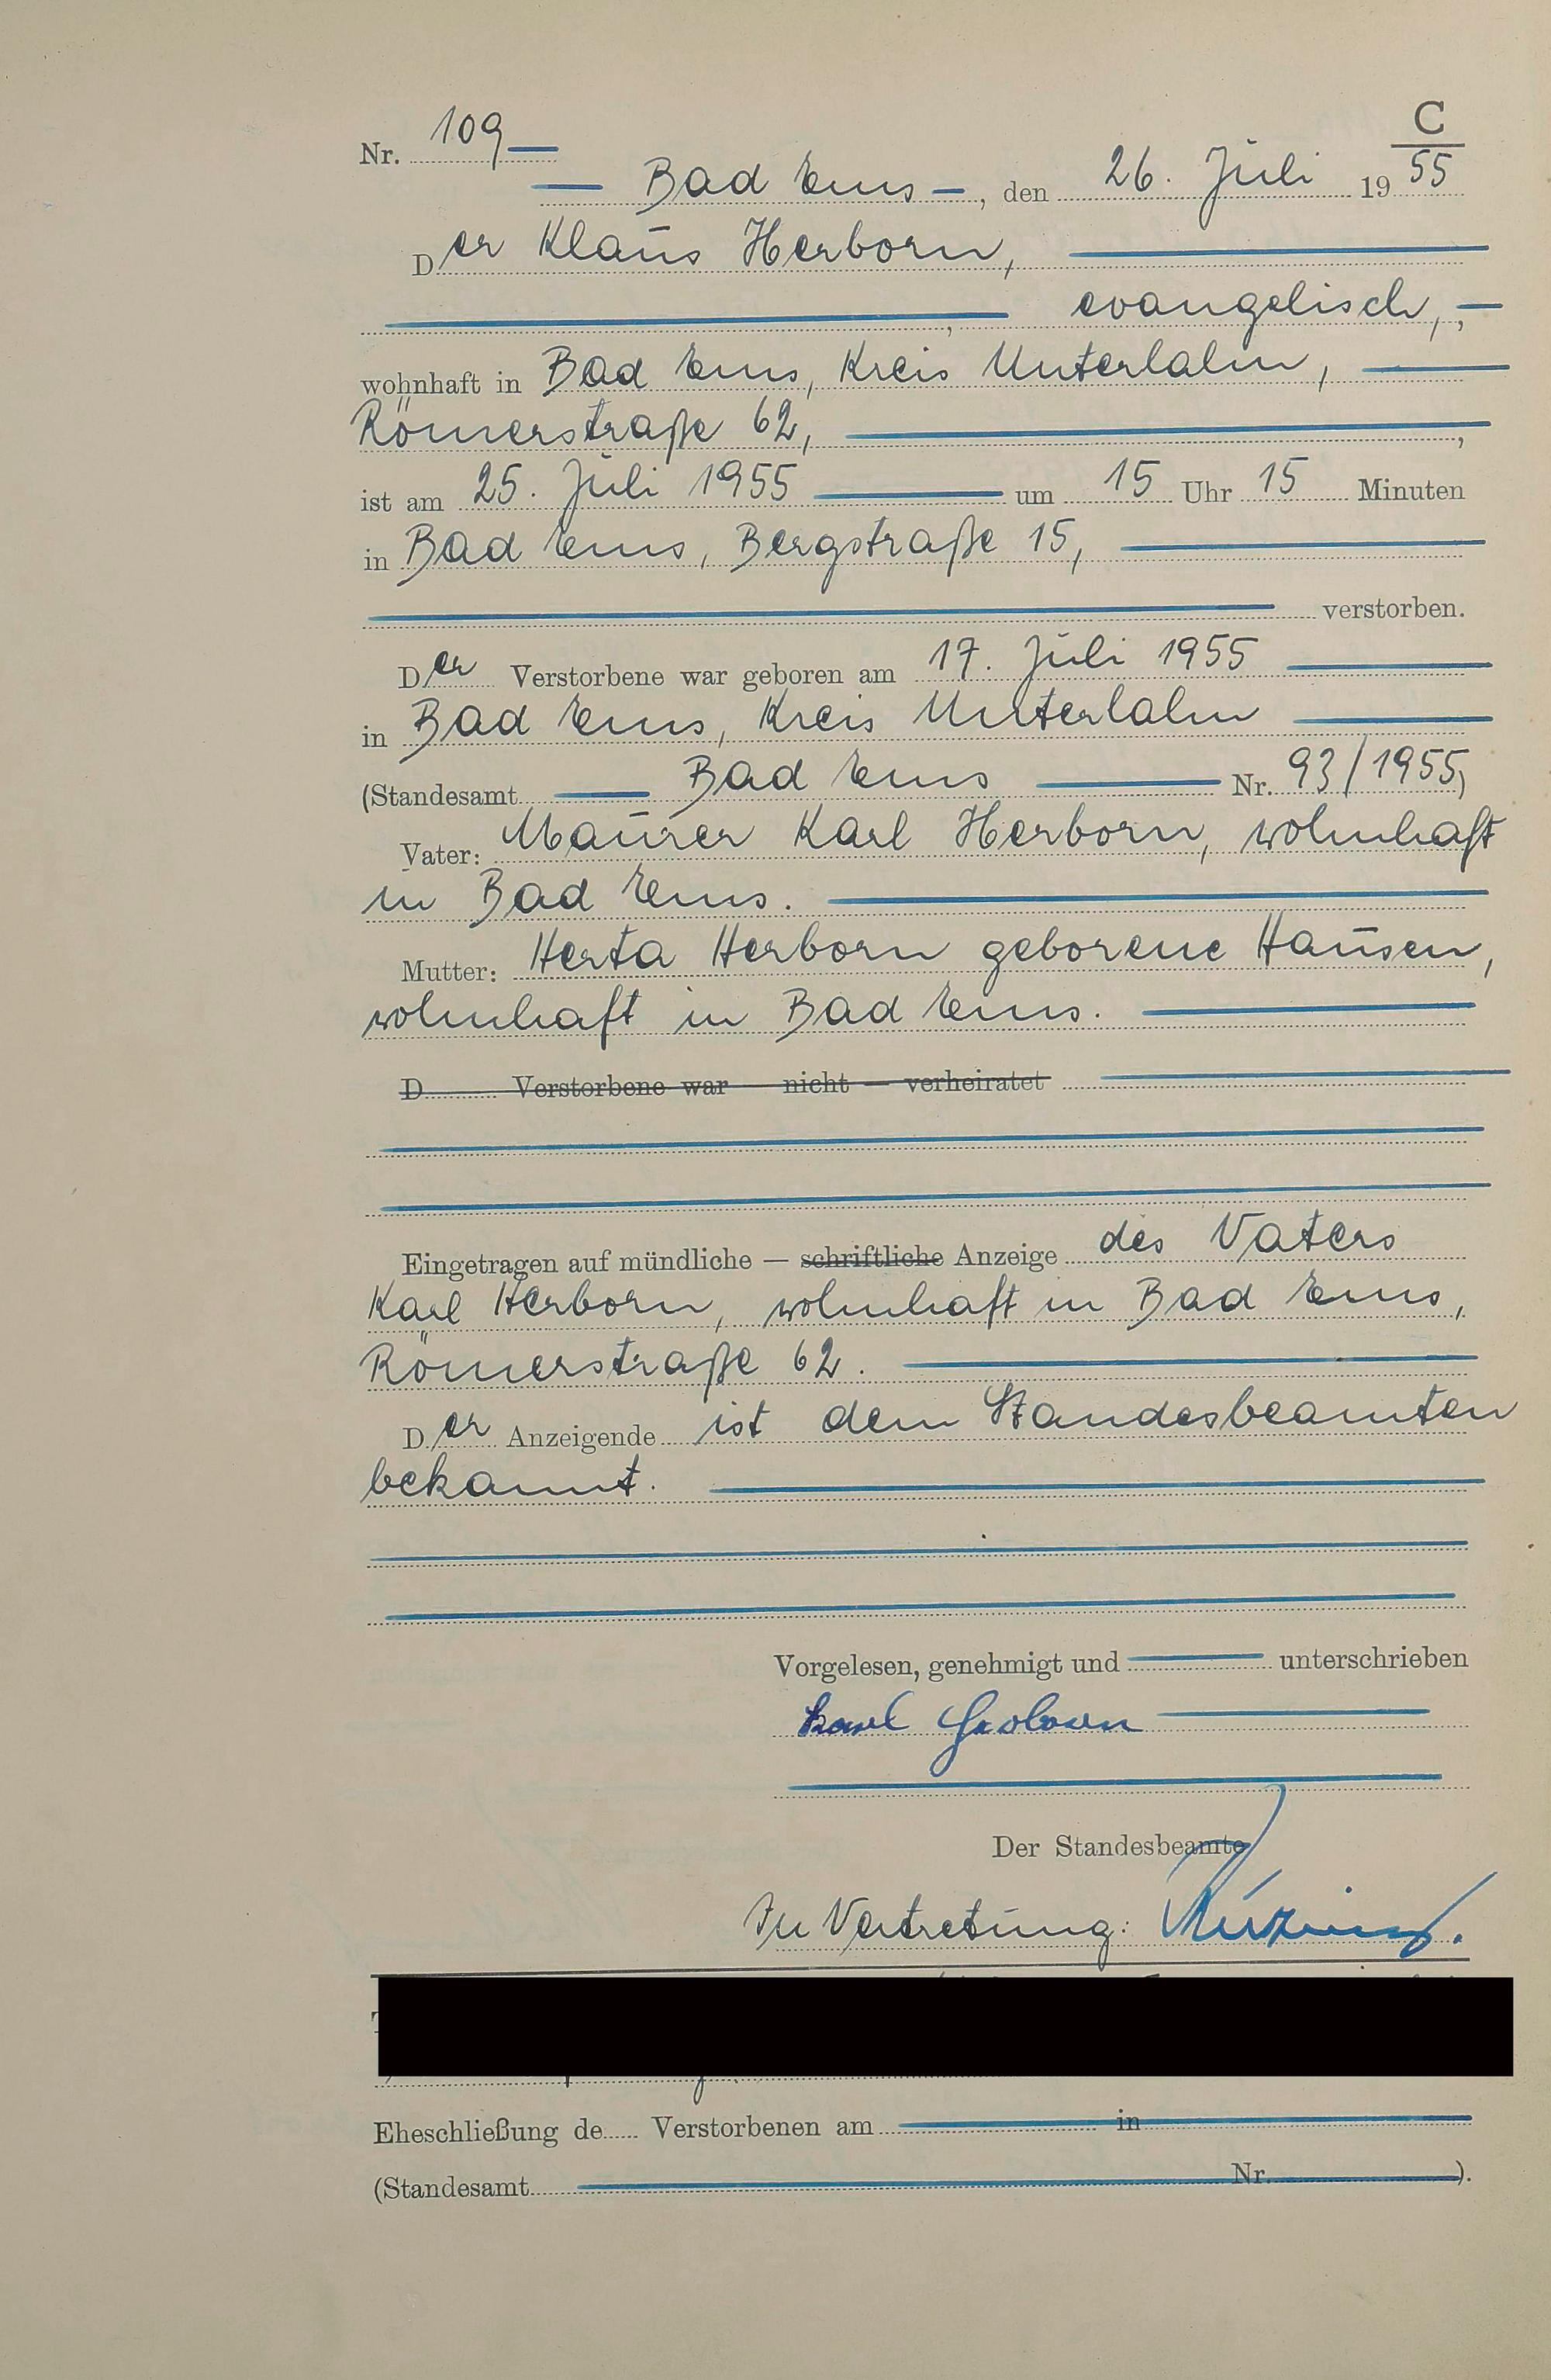 C
Nr. 109
55
Bad Ems, den 26. Juli 19
Der Klaus Herborn,
, evangelisch, ,
wohnhaft in Bad Ems, Kreis Unterlahn,
Römerstraße 62, ,
ist am 25. Juli 1955 um 15 Uhr 15 Minuten
in Bad Ems, Bergstraße 15,
verstorben.
Der Verstorbene war geboren am 17. Juli 1955
in Bad Ems, Kreis Unterlahn
(Standesamt Bad Ems Nr. 93/1955)
Vater: Maurer Karl Herborn, wohnhaft
in Bad Ems.
Mutter: Herta Herborn geborene Hausen,
wohnhaft in Bad Ems.
D Verstorbene war nicht — verheiratet
Eingetragen auf mündliche — schriftliche Anzeige des Vaters
Karl Herborn, wohnhaft in Bad Ems,
Römerstraße 62.
Der Anzeigende ist dem Standesbeamten
bekannt.
Vorgelesen, genehmigt und unterschrieben
Karl Herborn
Der Standesbeamte
In Vertretung:
Eheschließung de Verstorbenen am in
(Standesamt Nr. ).